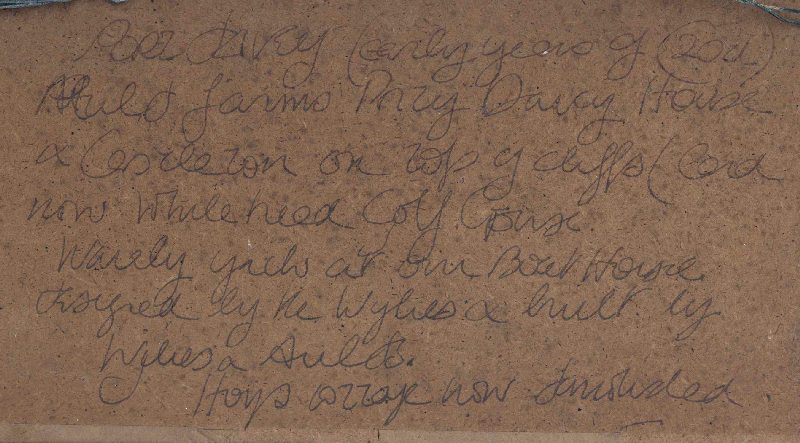 Port Davey (early years of (20th)
Auld farms Port Davey House
& Castleton on top of cliffs (land
now Whitehead Golf Course.
yachts at our Boat House
designed by the Wylies & built by
Wylies & Aulds.
Hoys cottage now demolished